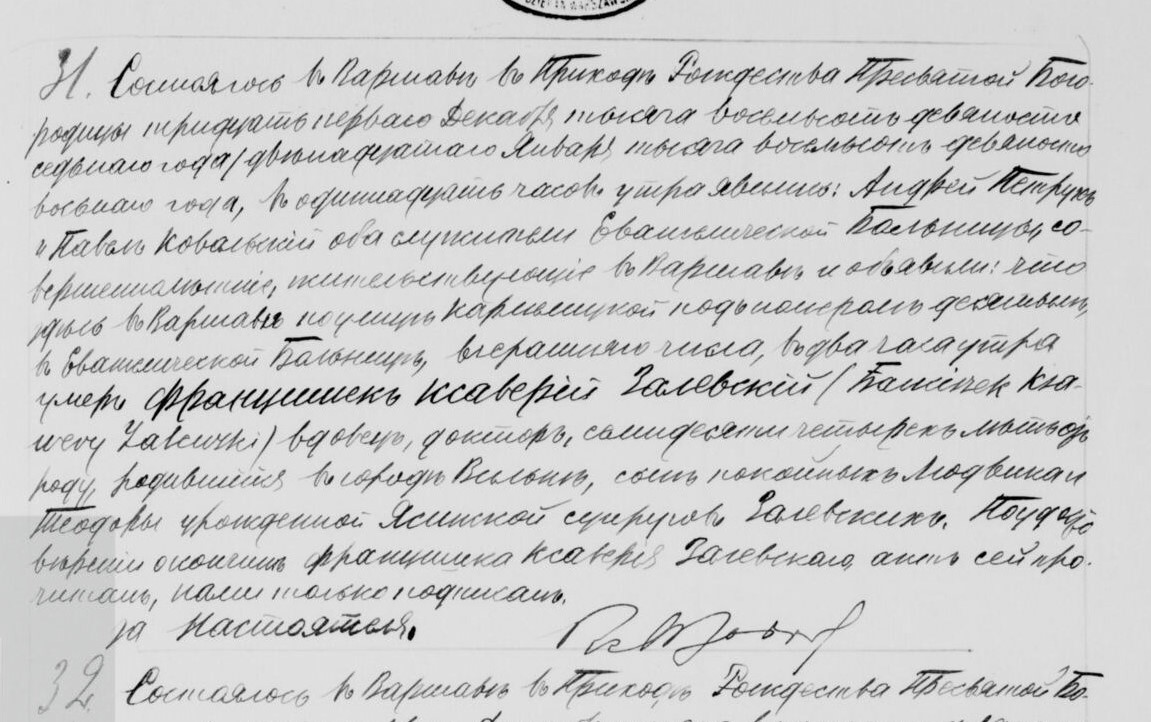 31. Состоялось въ Варшавѣ въ Приходѣ Рождества Пресвятой Бого-
родицы тридцать перваго Декабря тысяча восемьсотъ девяносто
седьмаго года / двѣнадцатаго Января тысяча восемьсотъ девяносто
восьмаго года, въ одиннадцать часовъ утра явились: Андрей
и Павелъ Ковальскій оба служители Евангелической Больницы, со-
вершеннолѣтніе, жительствующіе въ Варшавѣ и объявили: что
здѣсь въ Варшавѣ по улицѣ Кармелицкой подъ номеромъ десятымъ,
въ Евангелической Больницѣ, вчерашняго числа, въ два часа утра
умеръ Францишекъ Ксаверій Залевскій (Franciszek Ksa-
wery Zalewski) вдовецъ, докторъ, семидесяти четырехъ лѣтъ отъ
роду, родившійся въ городѣ Вильнѣ, сынъ покойныхъ Людвика и
Теодоры урожденной Ясинской супруговъ Залевскихъ. По удосто-
вѣреніи о кончинѣ Францишка Ксаверія Залевскаго, актъ сей про-
читанъ, нами только подписанъ.
за Настоятеля.
32. Состоялось въ Варшавѣ въ Приходѣ Рождества Пресвятой Бо-